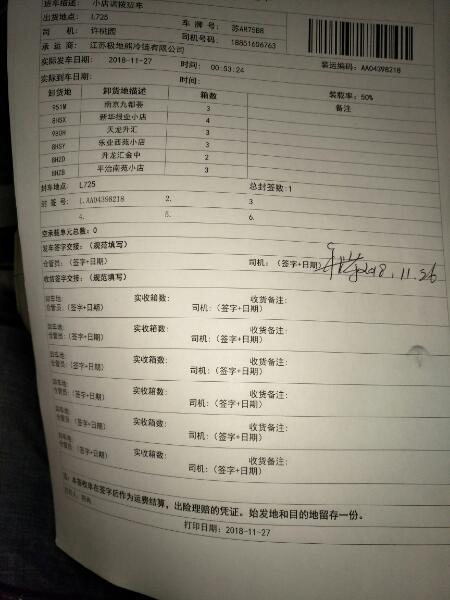 货车描述: 小店调拨货车
出货地点: L725 车 牌 号: 苏AR75B8
司 机: 许桃园 司机号码: 18851606763
承 运 商: 江苏极地熊冷链有限公司
实际发车日期: 2018-11-27 时间: 00:53:24 装运编码: AA04398218
实际到车日期: 时间: 装载率: 50%
卸货地 卸货地描述 箱数 备注
951M 南京九都荟 3
8HSX 新华纸业小店 4
980H 天龙升汇 3
8HSY 乐业西苑小店 3
8HZD 升龙汇金中 2
8HZB 平治南苑小店 3
封车地点: L725 总封签数:1
封 签 号: 1.AA04398218 2. 3
4. 5. 6.
空承载单元总数: 0
发车签字交接: (规范填写)
仓管员: (签字+日期) 司机: (签字+日期) 2018.11.26
收货签字交接: (规范填写)
卸车地: 实收箱数: 收货备注:
仓管员: (签字+日期) 司机: (签字+日期)
卸车地: 实收箱数: 收货备注:
仓管员: (签字+日期) 司机: (签字+日期)
卸车地: 实收箱数: 收货备注:
仓管员: (签字+日期) 司机: (签字+日期)
卸车地: 实收箱数: 收货备注:
仓管员: (签字+日期) 司机: (签字+日期)
卸车地: 实收箱数: 收货备注:
仓管员: (签字+日期) 司机: (签字+日期)
卸车地: 实收箱数: 收货备注:
仓管员: (签字+日期) 司机: (签字+日期)
注: 本签收单在签字后作为运费结算, 出险理赔的凭证。始发地和目的地留存一份。
打印日期: 2018-11-27